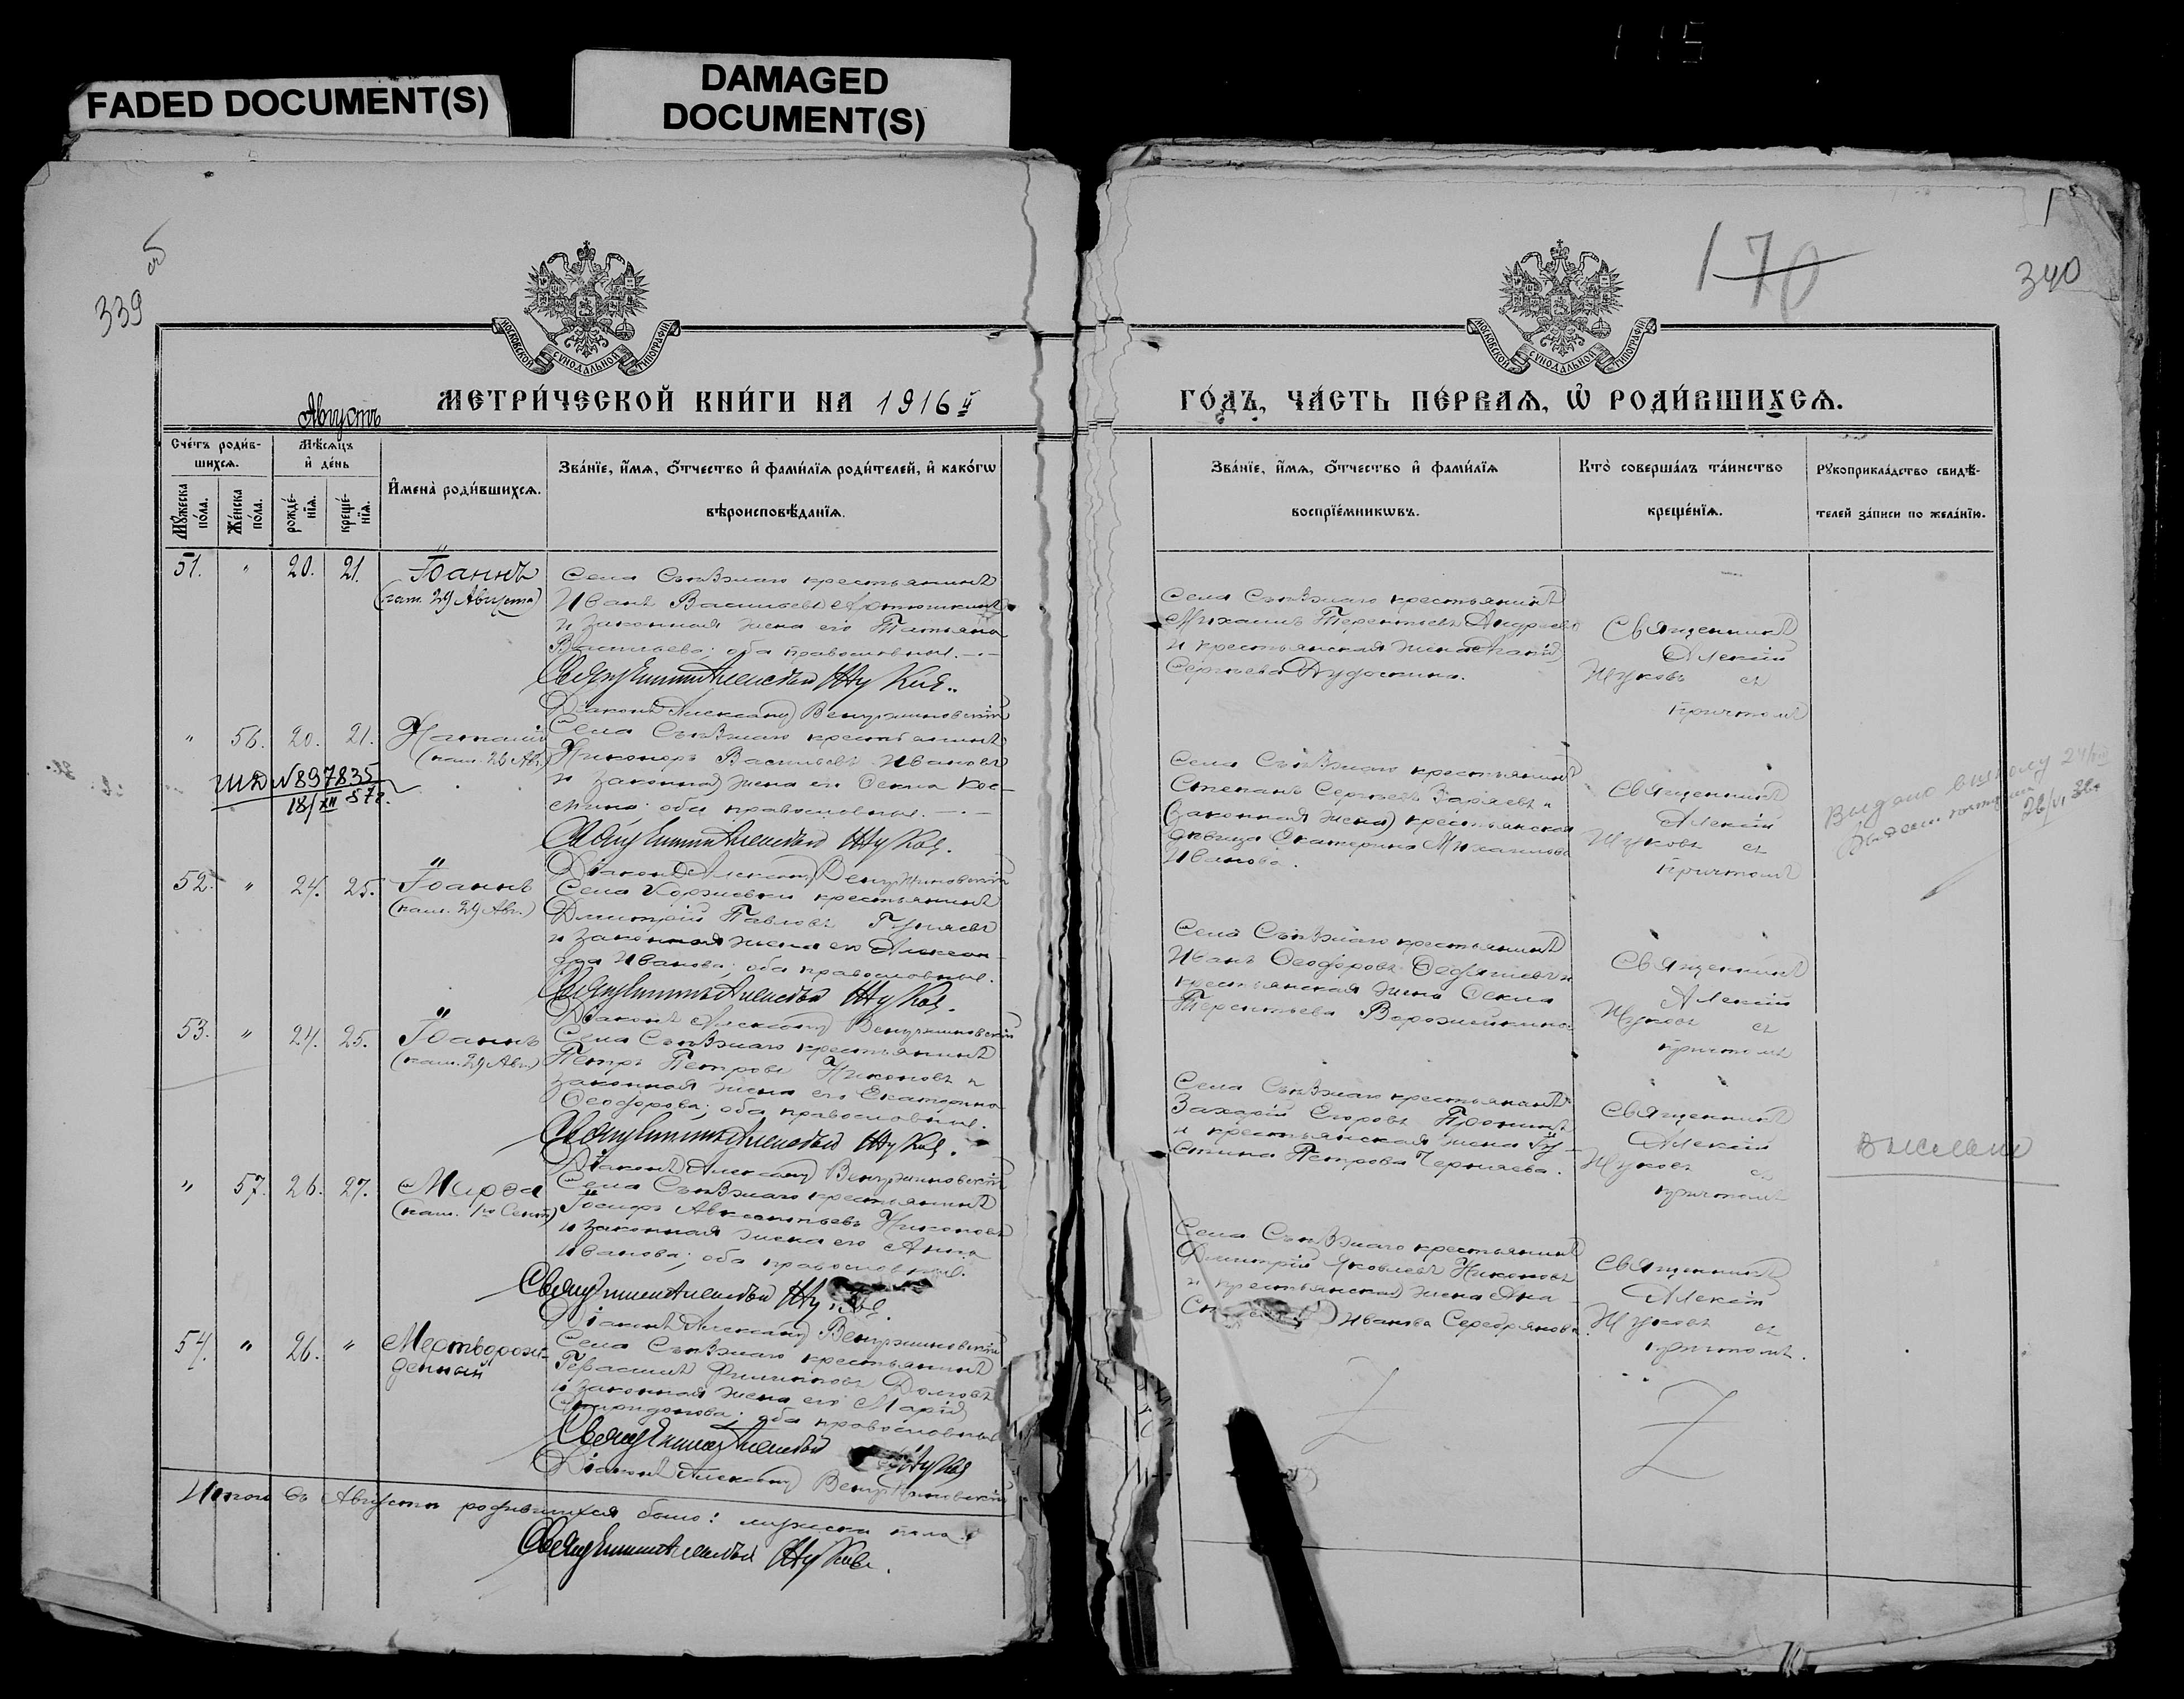 FADED DOCUMENT(S)
DAMAGED
DOCUMENT(S)
115
339
170
340
МОСКОВСКОЙ СѴНОДАЛЬНОЙ ТИПОГРАФІИ
МОСКОВСКОЙ СѴНОДАЛЬНОЙ ТИПОГРАФІИ
Августъ
МЕТРИ́ЧЕСКОЙ КНИ́ГИ НА 1916й
ГО́ДЪ, ЧА́СТЬ ПЕ́РВАѦ, Ѡ҆ РОДИ́ВШИХСѦ.
Сче́тъ роди́в-
шихсѧ.
Мѣ́сѧцъ
и҆ де́нь
Мꙋ́жеска
по́ла.
Же́нска
по́ла.
рожде́-
нїѧ.
креще́-
нїѧ.
И҆мена̀ роди́вшихсѧ.
Зва́нїе, и҆́мѧ, ѻ҆́тчество и҆ фами́лїѧ роди́телей, и҆ како́гѡ
вѣроисповѣ́данїѧ.
Зва́нїе, и҆́мѧ, ѻ҆́тчество и҆ фами́лїѧ
воспрїе́мникѡвъ.
Кто̀ соверша́лъ та́инство
креще́нїѧ.
Рꙋкоприкла́дство свидѣ́-
телей за́писи по жела́нїю.
51. " 20. 21. Іоаннъ
(пам. 29 Августа)
Села Съѣзжаго крестьянинъ
Иванъ Васильевъ Артюшкинъ
и законная жена его Татьяна
Васильева; оба православные.
Священникъ Алексѣй Жуковъ.
Діаконъ Александръ
Села Съѣзжаго крестьянинъ
Михаилъ Терентьевъ Андреевъ
и крестьянская жена
Сергѣева
Священникъ
Алексій
Жуковъ съ
причтомъ
" 56. 20. 21. Наталія
(пам. 26 Авг.)
№897835
18/XII 57г.
Села Съѣзжаго крестьянинъ
Никоноръ Васильевъ Ивановъ
и законная жена его Ѳекла Кос-
оба православные.
Священникъ Алексѣй Жуковъ.
Діаконъ Александръ
Села Съѣзжаго крестьянинъ
Степанъ Сергѣевъ и
(законная жена) крестьянская
дѣвица Екатерина Михайлова
Иванова.
Священникъ
Алексій
Жуковъ съ
причтомъ
Выдано
52. " 24. 25. Іоаннъ
(пам. 29 Авг.)
Села крестьянинъ
Дмитрій Павловъ
и законная жена его Алексан-
дра Иванова; оба православные.
Священникъ Алексѣй Жуковъ.
Діаконъ Александръ
Села Съѣзжаго крестьянинъ
Иванъ Ѳеодоровъ и
крестьянская жена Ѳекла
Терентьева Ворожейкина.
Священникъ
Алексій
Жуковъ съ
причтомъ
53. " 24. 25. Іоаннъ
(пам. 29 Авг.)
Села Съѣзжаго крестьянинъ
Петръ Петровъ Никоновъ и
законная жена его Екатерина
Ѳеодорова; оба православные.
Священникъ Алексѣй Жуковъ.
Діаконъ Александръ
Села Съѣзжаго крестьянинъ
Захарій Егоровъ Пронинъ
и крестьянская жена Іу-
стина Петрова Черняева.
Священникъ
Алексій
Жуковъ съ
причтомъ
" 57. 26. 27. Марѳа
(пам. 1го Сент.)
Села Съѣзжаго крестьянинъ
Іосифъ Авксентьевъ Никоновъ
и законная жена его Анна
Иванова; оба православные.
Священникъ Алексѣй
Діаконъ Александръ
Села Съѣзжаго крестьянинъ
Дмитрій Яковлевъ Никоновъ
и крестьянская жена
Иванова Серебрякова.
Священникъ
Алексій
Жуковъ съ
причтомъ.
54. " 26. " Мертворож-
денный
Села Съѣзжаго крестьянинъ
Герасимъ Филипповъ Долговъ
и законная жена его Марія
Спиридонова; оба православные
Священникъ Алексѣй Жуковъ
Діаконъ Александръ
Итого въ Августѣ родившихся было: мужеска пола
Священникъ Алексѣй Жуковъ.